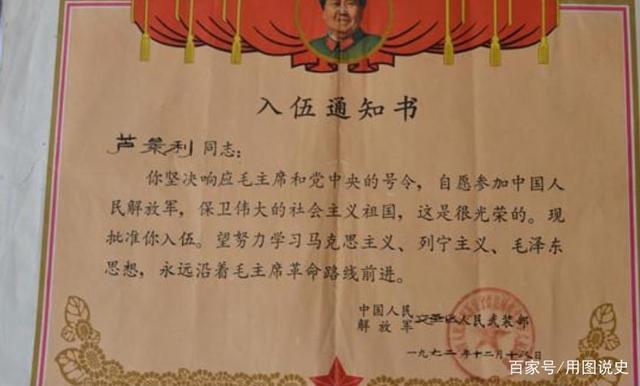 入伍通知书
芦集利同志：
你坚决响应毛主席和党中央的号令，自愿参加中国人
民解放军，保卫伟大的社会主义祖国，这是很光荣的。现
批准你入伍。望努力学习马克思主义、列宁主义、毛泽东
思想，永远沿着毛主席革命路线前进。
中国人民
解放军 人民武装部
一九七二年十二月十八日
百家号/用图说史